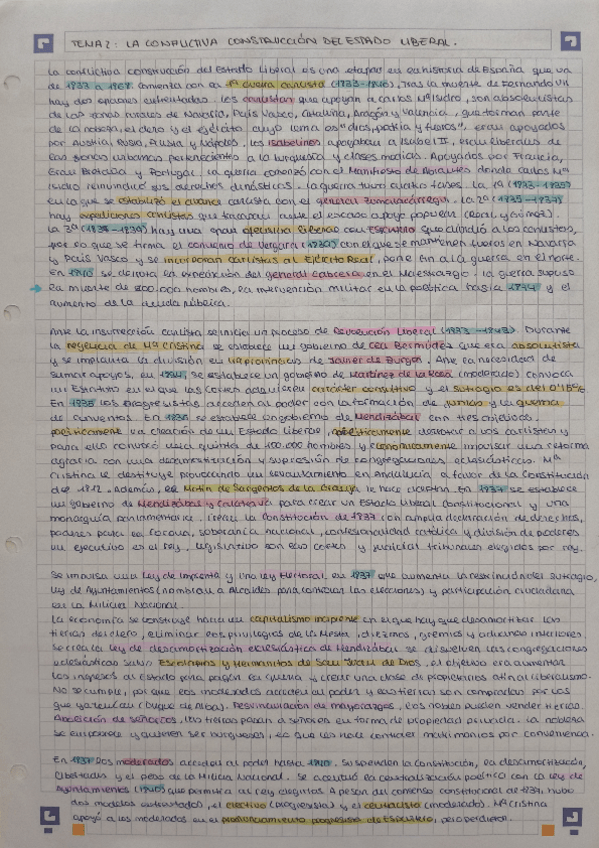 TEMA 2: LA CONFLICTIVA CONSTRUCCIÓN DEL ESTADO LIBERAL.
La conflictiva construcción del Estado Liberal es una etapa en la historia de España que va
de 1833 a 1868. Comienza con la 1ª guerra carlista (1833-1840), tras la muerte de Fernando VII
hay dos opciones enfrentadas. Los carlistas que apoyan a Carlos Mª Isidro, son absolutistas
de las zonas rurales de Navarra, País Vasco, Cataluña, Aragón y Valencia, que forman parte
de la nobleza, el clero y el ejército cuyo lema es "dios, patria y fueros", eran apoyados
por Austria, Rusia, Prusia y Nápoles. Los isabelinos apoyaban a Isabel II, eran liberales de
las zonas urbanas pertenecientes a la burguesía y clases medias. Apoyados por Francia,
Gran Bretaña y Portugal. La guerra comenzó con el Manifiesto de Abrantes donde Carlos Mª
Isidro reivindicó sus derechos dinásticos. La guerra tuvo cuatro fases. La 1ª (1833-1835)
en la que se estabilizó el avance carlista con el general Zumalacárregui. La 2ª (1835-1837)
hay expediciones carlistas que fracasan ante el escaso apoyo popular
La 3ª (1837-1839) hay una gran ofensiva liberal con Espartero que dividió a los carlistas,
por lo que se firma el convenio de Vergara (1839) con el que se mantienen fueros en Navarra
y País Vasco y se incorporan carlistas al Ejército Real, pone fin a la guerra en el norte.
En 1840 se derrota la expedición del general Cabrera en el Maestrazgo. La guerra supuso
la muerte de 200.000 hombres, la intervención militar en la política hasta 1874 y el
aumento de la deuda pública.
Ante la insurrección carlista se inicia un proceso de Revolución Liberal (1833-1843). Durante
la regencia de Mª Cristina se establece un gobierno de Cea Bermúdez que era absolutista
y se implanta la división en provincias de Javier de Burgos. Ante la necesidad de
sumar apoyos, en 1834, se establece un gobierno de Martínez de la Rosa (moderado) convoca
un Estatuto en el que las Cortes adquieren carácter consultivo y el sufragio es del 0'15%
En 1835 los progresistas acceden al poder con la formación de juntas y la quema
de conventos. En 1835 se establece un gobierno de Mendizábal con tres objetivos:
políticamente la creación de un Estado Liberal, destruir a los carlistas y
para ello convocó una quinta de 100.000 hombres y económicamente impulsar una reforma
agraria con una desamortización y supresión de congregaciones eclesiásticas. Mª
Cristina le destituye provocando un levantamiento en Andalucía a favor de la Constitución
del 1812. Además, el Motín de Sargentos de la Granja le hace En 1837 se establece
un gobierno de Mendizábal y Calatrava para crear un Estado Liberal Constitucional y una
monarquía parlamentaria. Crean la Constitución de 1837 con amplia declaración de derechos,
poderes para la Corona, soberanía nacional, confesionalidad católica y división de poderes
un ejecutivo es el rey, legislativo son las Cortes y judicial tribunales elegidos por rey.
Se impulsa una Ley de Imprenta y una ley Electoral, en 1837 que aumenta la sufragio,
ley de Ayuntamientos (nombran a Alcaldes para controlar las elecciones) y participación ciudadana
en la Milicia Nacional.
La economía se construye hacia un capitalismo incipiente en el que hay que desamortizar las
tierras del clero, eliminar los privilegios de la Mesta, diezmos, gremios y aduanas interiores.
Se crea la ley de desamortización eclesiástica de Mendizábal. Se disuelven las congregaciones
eclesiásticas salvo Escolapios y Hermanitos de San Juan de Dios, el objetivo era aumentar
los ingresos al Estado para pagar la guerra y crear una clase de propietarios afín al liberalismo.
No se cumple, por que los moderados acceden al poder y las tierras son compradas por los
que ya tenían (Duque de Alba). Desvinculación de mayorazgos, los nobles pueden vender tierras.
Abolición de señoríos, las tierras pasan a señores en forma de propiedad privada. La nobleza
se empobrece y quieren ser burgueses, lo que les hace contraer matrimonios por conveniencia.
En 1837 los moderados acceden al poder hasta 1840. Suspenden la Constitución, la desamortización,
libertades y el peso de la Milicia Nacional. Se acentuó la centralización política con la ley de
Ayuntamientos (1840) que permitía al rey elegirlos. A pesar del consenso constitucional de 1837, hubo
dos modelos enfrentados, el electivo (progresista) y el centralista (moderado). Mª Cristina
apoyó a los moderados en el pronunciamiento progresista de Espartero, pero perdieron.